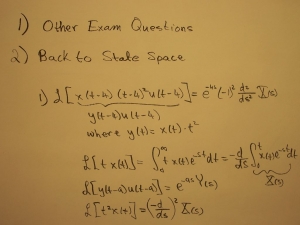 1) Other Exam Questions
2) Back to State Space
1) ℒ[x(t-4)(t-4)²u(t-4)] = e^{-4s}(-1)² d²/ds² X(s)
y(t-4)u(t-4)
where y(t) = x(t)·t²
ℒ[t x(t)] = ∫₀^∞ t x(t) e^{-st} dt = -d/ds ∫ x(t) e^{-st} dt
X(s)
ℒ[y(t-a)u(t-a)] = e^{-as} Y(s)
ℒ[t² x(t)] = (-d/ds)² X(s)